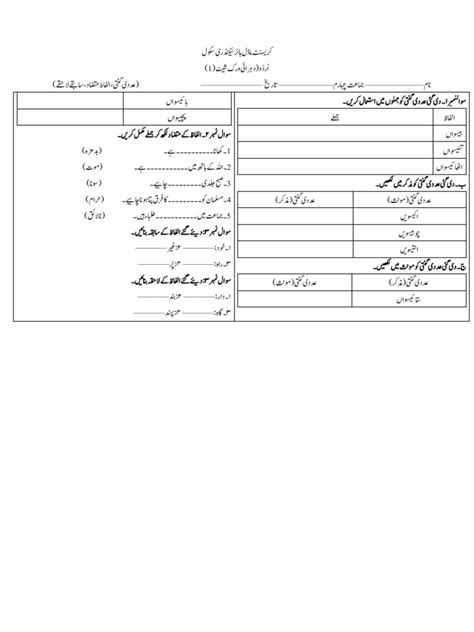 کریسنٹ ماڈل ہائر سیکنڈری سکول
اُردو (دہرائی ورک شیٹ (1)
نام ---------------- جماعت چہارم ---------------- تاریخ ---------------- (عددی گنتی، الفاظ متضاد، سابقے لاحقے)
سوال نمبر ا۔ دی گئی عددی گنتی کو جملوں میں استعمال کریں۔
الفاظ جملے
بیسواں
تئیسواں
اٹھائیسواں
ب۔ دی گئی عددی گنتی کو مذکر میں لکھیں۔
عددی گنتی (مونث) عددی گنتی (مذکر)
اکیسویں
چوبیسویں
انتیسویں
ج۔ دی گئی عددی گنتی کو مونث میں لکھیں۔
عددی گنتی (مذکر) عددی گنتی (مونث)
ستائیسواں
بائیسواں
چھبیسواں
سوال نمبر ۲۔ الفاظ کے متضاد لکھ کر جملے مکمل کریں۔
1۔ کھانا ----------ہے۔ (بدمزہ)
2۔ اللہ کے ہاتھ میں ----------ہے۔ (موت)
3۔ صبح جلدی ----------چاہیے۔ (سونا)
4۔ مسلمان کو ----------کا فرق پتا ہونا چاہیے۔ (حرام)
5۔ جماعت میں ----------طلباء ہیں۔ (نالائق)
سوال نمبر ۳: دیئے گئے الفاظ کے سابقہ بنائیں۔
۱۔ خود: ---------- ۲: غیر ----------
۳۔ راہ: ---------- ۴: پُر ----------
سوال نمبر ۳: دیئے گئے الفاظ کے لاحقہ بنائیں۔
۱۔ دار: ---------- ۲: بند ----------
۳۔ گاہ: ---------- ۴: پسند ----------